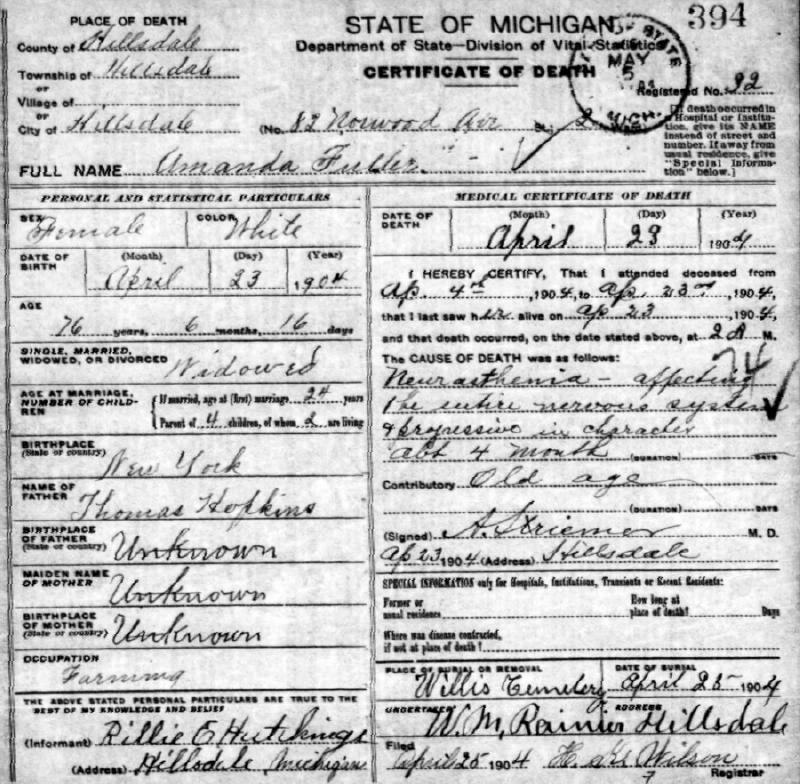 394
PLACE OF DEATH
County of Hillsdale
Township of Hillsdale
or
Village of
or
City of Hillsdale
STATE OF MICHIGAN
Department of State—Division of Vital Statistics
CERTIFICATE OF DEATH
STATE
MAY
5
MICH.
Registered No. 92
(No. 82 Norwood Ave 2
[If death occurred in
a Hospital or Institu-
tion, give its NAME
instead of street and
number. If away from
usual residence, give
"Special Informa-
tion" below.]
FULL NAME Amanda Fuller
PERSONAL AND STATISTICAL PARTICULARS
SEX Female COLOR White
DATE OF
BIRTH
(Month) (Day) (Year)
April 23 1904
AGE
76 years, 6 months, 16 days
SINGLE, MARRIED,
WIDOWED, OR DIVORCED Widowed
AGE AT MARRIAGE,
NUMBER OF CHILD-
REN
If married, age at (first) marriage 24 years
Parent of 4 children, of whom 2 are living
BIRTHPLACE
(State or country) New York
NAME OF
FATHER Thomas Hopkins
BIRTHPLACE
OF FATHER
(State or country) Unknown
MAIDEN NAME
OF MOTHER Unknown
BIRTHPLACE
OF MOTHER
(State or country) Unknown
OCCUPATION
Farming
THE ABOVE STATED PERSONAL PARTICULARS ARE TRUE TO THE
BEST OF MY KNOWLEDGE AND BELIEF
(Informant) Rillie C Hutchings
(Address) Hillsdale, Michigan
MEDICAL CERTIFICATE OF DEATH
DATE OF
DEATH
(Month) (Day) (Year)
April 23 1904
I HEREBY CERTIFY, That I attended deceased from
Ap. 4th, 1904, to Ap. 23rd, 1904,
that I last saw her alive on Ap 23, 1904,
and that death occurred, on the date stated above, at 2 A M.
The CAUSE OF DEATH was as follows:
74
Neurasthenia - affecting
the entire nervous system
& progressive in character
abt 4 month (DURATION) DAYS
Contributory Old age
(DURATION) DAYS
(Signed) M. D.
Ap 23 1904 (Address) Hillsdale
SPECIAL INFORMATION only for Hospitals, Institutions, Transients or Recent Residents:
Former or
usual residence
How long at
place of death? Days
Where was disease contracted,
if not at place of death?
PLACE OF BURIAL OR REMOVAL DATE OF BURIAL
Willis Cemetery April 25 1904
UNDERTAKER ADDRESS
W. M. Rainier Hillsdale
Filed
April 25 1904 Wilson
Registrar